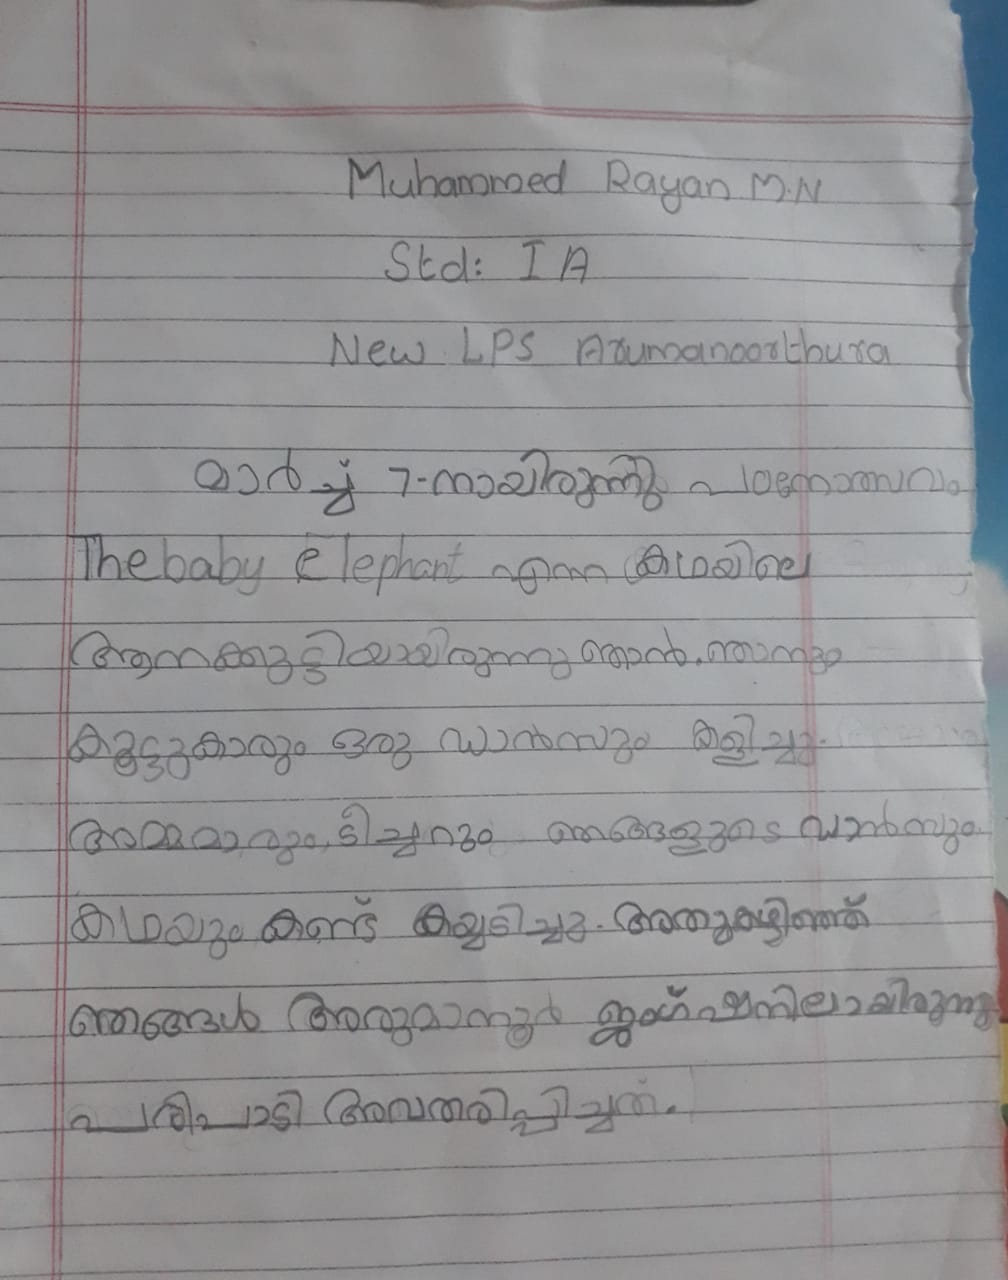 Muhammed Rayan M.N
Std: I A
New LPS Arumanoorthura
മാർച്ച് 7-നായിരുന്നു പഠനോത്സവം
The baby Elephant എന്ന കഥയിലെ
ആനക്കുട്ടിയായിരുന്നു ഞാൻ. ഞാനും
കൂട്ടുകാരും ഒരു ഡാൻസും കളിച്ചു.
അമ്മമാരും, ടീച്ചറും ഞങ്ങളുടെ ഡാൻസും
കഥയും കണ്ട് കയ്യടിച്ചു. അതുകഴിഞ്ഞ്
ഞങ്ങൾ അരുമാനൂർ ജംഗ്ഷനിലായിരുന്നു
പരിപാടി അവതരിപ്പിച്ചത്.